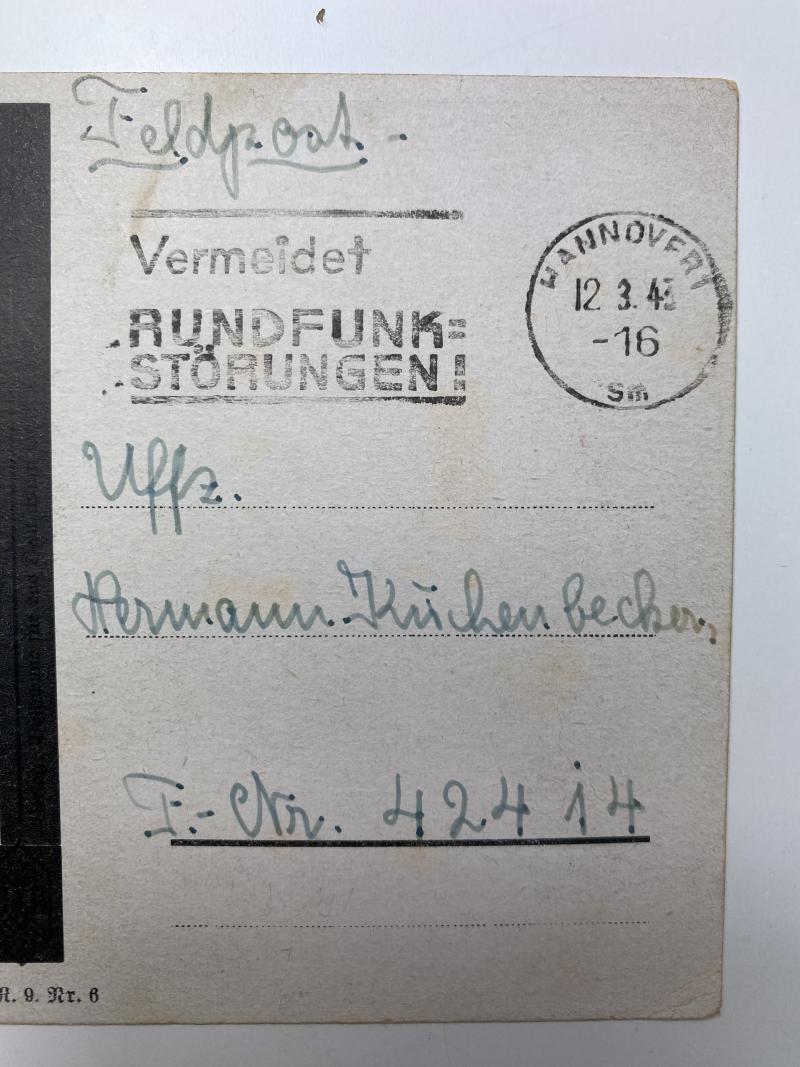 Feldpost.-
Vermeidet
RUNDFUNK=
STÖRUNGEN!
HANNOVER 1
12.3.43
-16
Sm
Uffz.
Hermann Küchenbecker,
F.-Nr. 42414
R. 9. Nr. 6